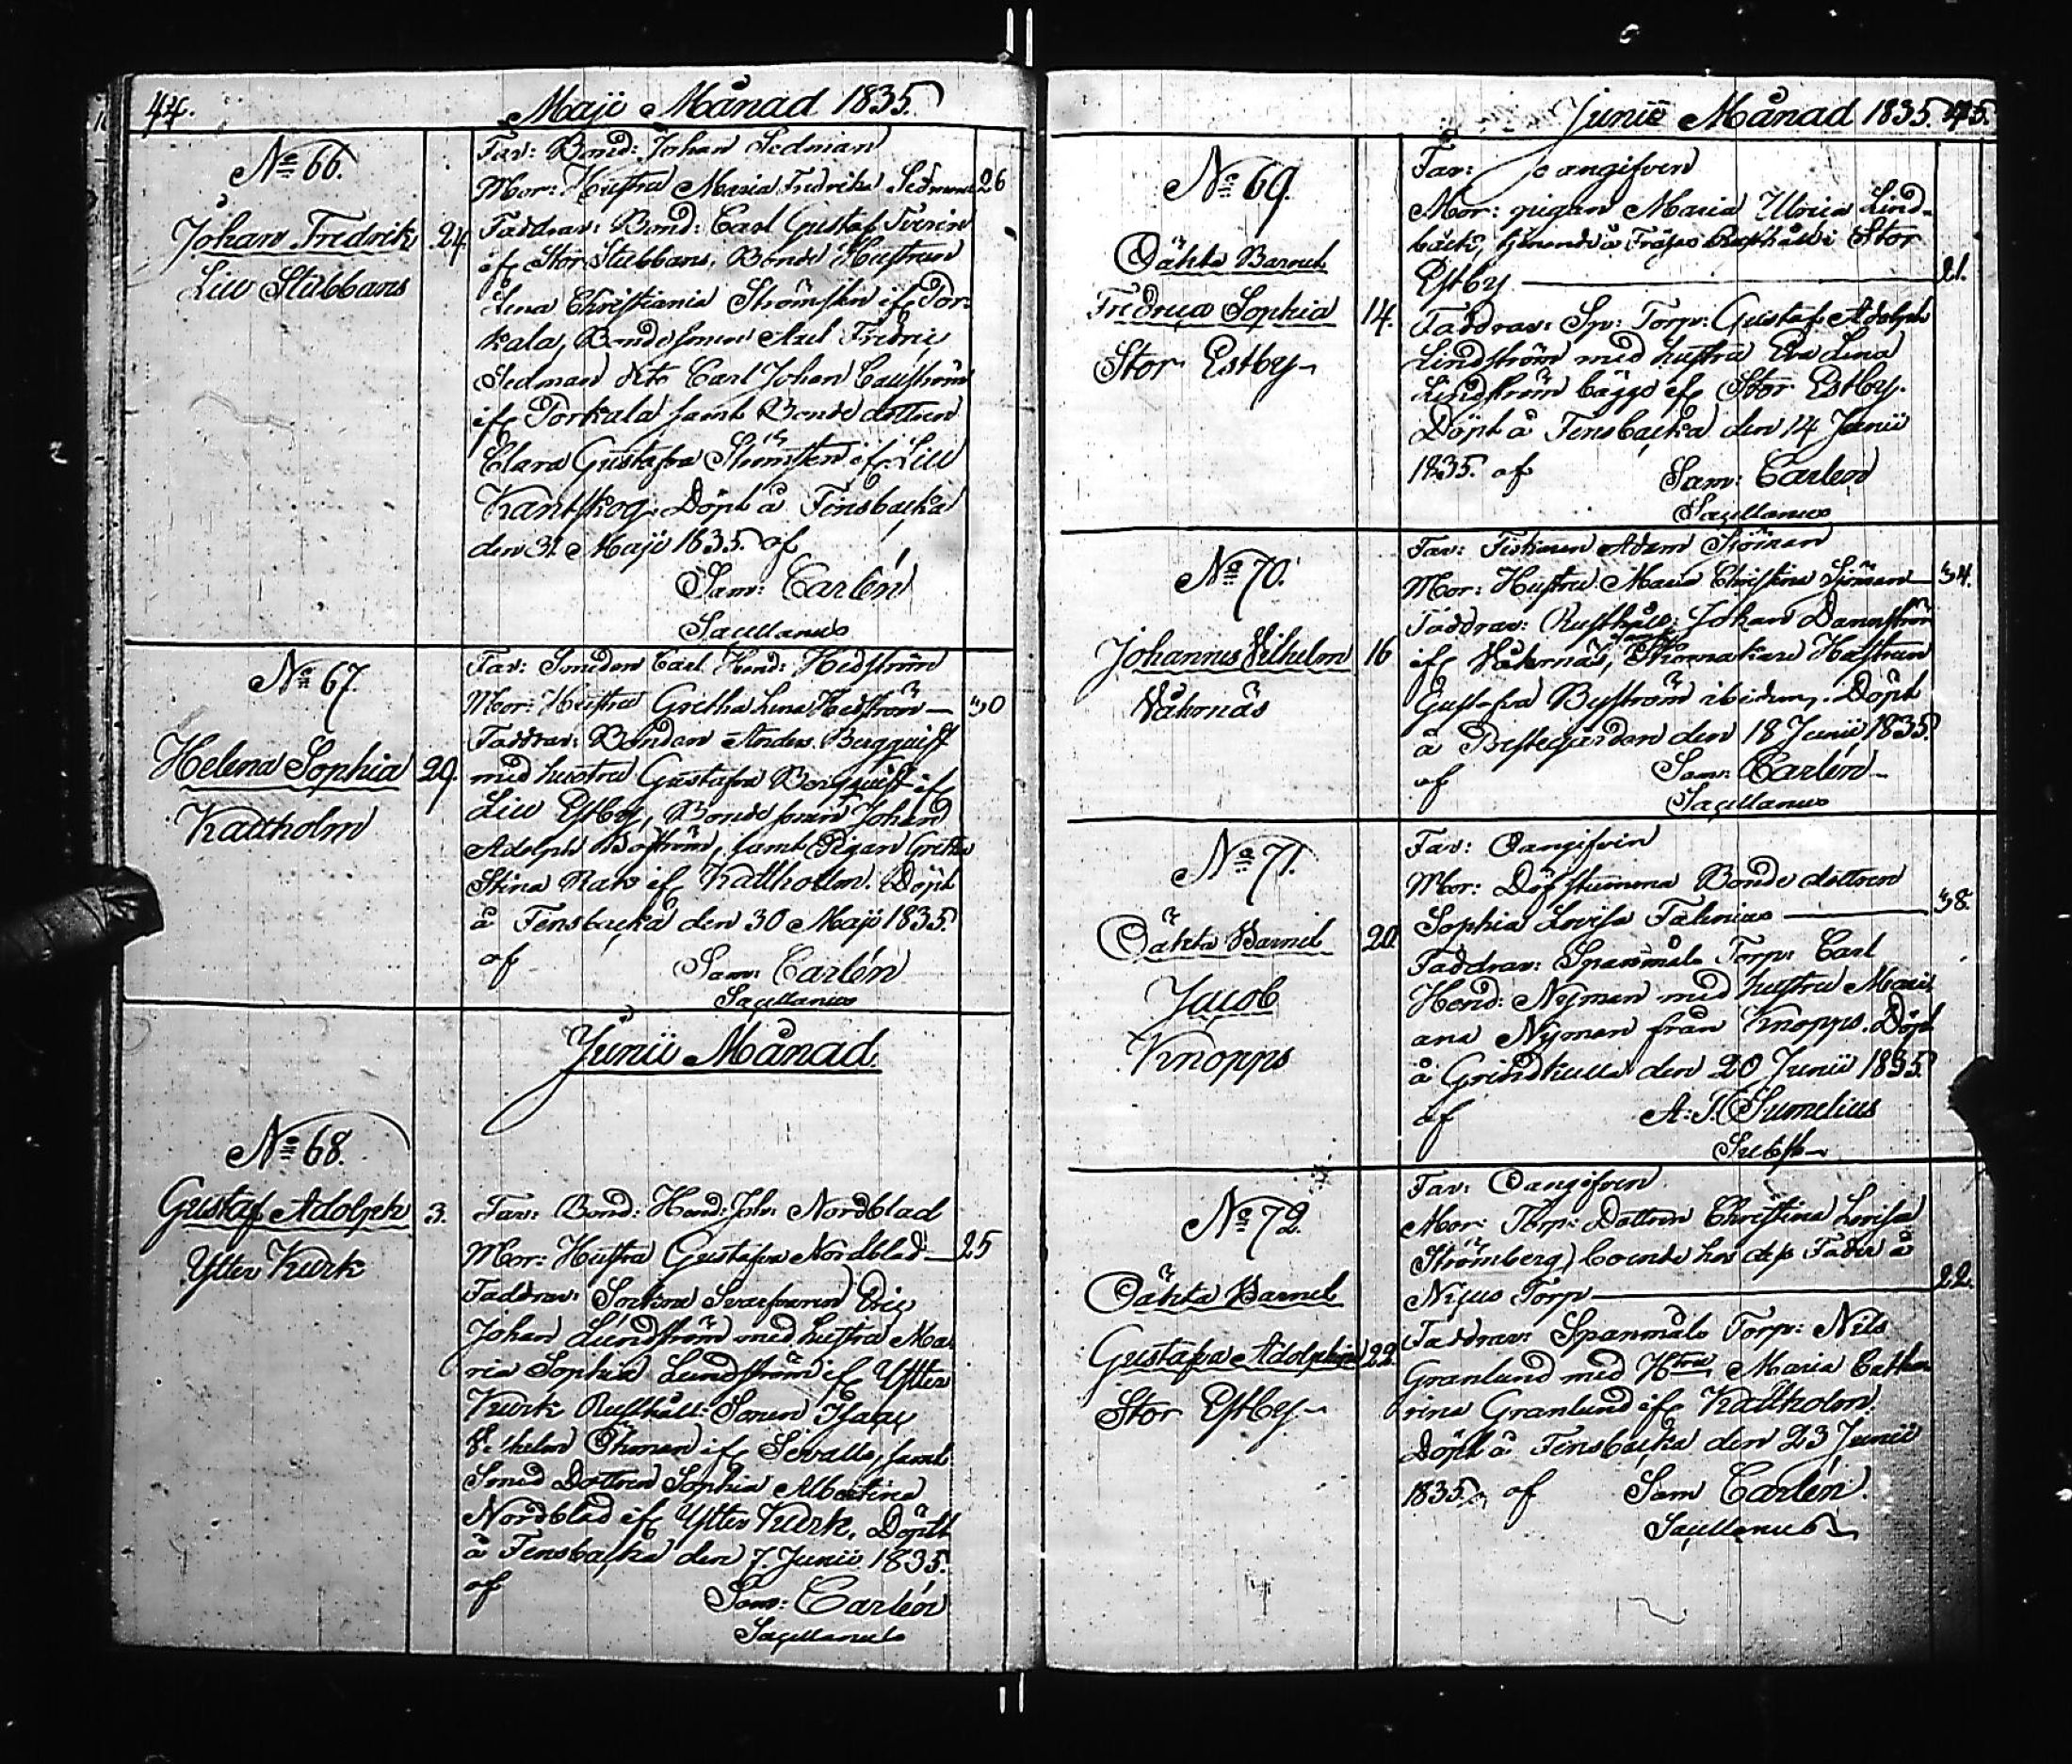 44.
Maji Månad 1835.
No 66.
Johan Fredrik
Lill Stubbans
24.
Far: Bond: Johan Sedman
Mor: Hustru Maria Fredrika Sedman 26
Faddrar: Bond: Carl Gustaf Tverin
if Stor Stubbans, Bonde Hustrun
Lena Christiania Strömsten if Por-
kala, Bondesonen Axel Fredric
Sedman dito Carl Johan
if Porkala samt Bonde dottren
Clara Gustafva Strömsten if Lill
Kantskog. Döpt å Finsbacka
den 31 Maji 1835. af
Sam: Carlén
Sacellanus
No 67.
Helena Sophia
Kallholm
29.
Far: Smeden Carl Hend: Hedström
Mor: Hustru Gretha Lena Hedström — 30
Faddrar: Bonden Anders Bergquist
med hustru Gustafva Bergquist if
Lill Estby, Bonde sonen Johan
Adolph Boström, samt Pigan Gretha
Stina Rak if Kallholm. Döpt
å Finsbacka den 30 Maji 1835.
af
Sam: Carlén
Sacellanus
Junii Månad.
No 68.
Gustaf Adolph
Ytter Kurk
3.
Far: Bond: Hend: Joh: Nordblad
Mor: Hustru Gustafva Nordblad — 25
Faddrar: Sockne Skräddaren Eric
Johan Lundström med hustru Ma-
ria Sophia Lundström if Ytter
Kurk Rusthåll: Sonen Isaac
Vilhelm Öhman if Sevalls, samt
Smed Dottren Sophia Albertina
Nordblad if Ytter Kurk. Döpt
å Finsbacka den 7. Junii 1835.
af
Sam: Carlén
Sacellanus
Junii Månad 1835. 45.
No 69.
Oächta Barnet
Fredrica Sophia
Stor Estby
14.
Far: oangifven
Mor: pigan Maria Ulrica Lind-
bäck, tjenande å Rusthåll i Stor
Estby — 21.
Faddrar: Sp: Torp: Gustaf Adolph
Lindström med hustru Eva Lena
Lindström bägge if Stor Estby.
Döpt å Finsbacka den 14 Junii
1835. af
Sam: Carlén
Sacellanus
No 70.
Johannes Vilhelm
Våhrnäs
16
Far: Fiskaren Adam Sjöman
Mor: Hustru Maria Christina Sjöman — 34.
Faddrar: Rusthåll: Johan Danström
if Våhrnäs, samt Skomakare Hustrun
Gustafva Byström ibidem. Döpt
å Prestegården den 18 Junii 1835.
af
Sam: Carlén
Sacellanus
No 71.
Oächta Barnet
Jacob
Knopps
20.
Far: Oangifven
Mor: Döfstumma Bonde dottren
Sophia Lovisa Falenius — 38.
Faddrar: Spanmåls Torp: Carl
Hend: Nyman med hustru Mari-
ana Nyman från Knopps. Döpt
å Grindkulla den 20 Junii 1835.
af
A: J. Sumelius
Subst
No 72.
Oächta Barnet
Gustafva Adolphina
Stor Estby
22.
Far: Oangifven
Mor: Torp: Dottren Christina Lovisa
Strömberg, boende hos des Fader å
Nygus Torp — 22.
Faddrar: Spanmåls Torp: Nils
Granlund med Htru Maria Catha-
rina Granlund if Kallholm.
Döpt å Finsbacka den 23 Junii
1835. af
Sam Carlén.
Sacellanus